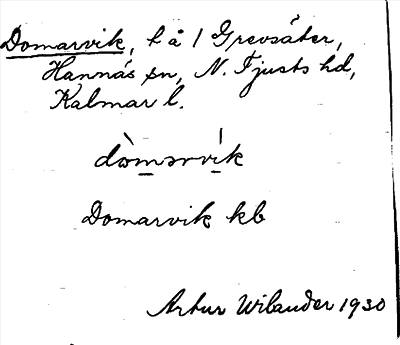 Domarvik, t å 1 Grevsäter,
Hannäs sn, N. Tjusts hd,
Kalmar l.
dòmərvík
Domarvik kb
Artur Wilander 1930